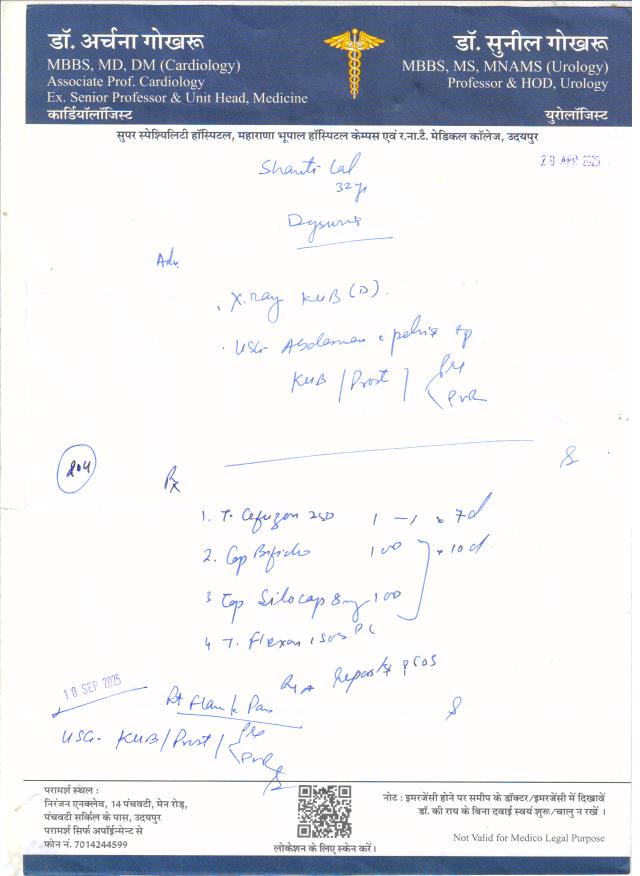 डॉ. अर्चना गोखरू
MBBS, MD, DM (Cardiology)
Associate Prof. Cardiology
Ex. Senior Professor & Unit Head, Medicine
कार्डियॉलॉजिस्ट
डॉ. सुनील गोखरू
MBBS, MS, MNAMS (Urology)
Professor & HOD, Urology
युरोलॉजिस्ट
सुपर स्पेश्यिलिटी हॉस्पिटल, महाराणा भूपाल हॉस्पिटल केम्पस एवं र.ना.टै. मेडिकल कॉलेज, उदयपुर
Shanti Lal
32 yr
29 APR 2025
Dysuria
Adv.
. X.ray KUB (D).
. USG Abdomen pelvis
KUB / Prost / Pre
PVR
204
Rx
1. T. 250 1 - 1 x 7d
2. Cap Bifido 100
x 10d
3 Cap Silocap 8mg 100
4 T. Flexon 1 SOS
18 SEP 2025
Reports SOS
Rt Flank Pain
USG - KUB / Prost / Pre
PVR
परामर्श स्थल :
निरंजन एनक्लेव, 14 पंचवटी, मेन रोड़,
पंचवटी सर्किल के पास, उदयपुर
परामर्श सिर्फ अपॉईन्मेन्ट से
फोन नं. 7014244599
लोकेशन के लिए स्केन करें।
नोट : इमरजेंसी होने पर समीप के डॉक्टर/इमरजेंसी में दिखावें
डॉ. की राय के बिना दवाई स्वयं शुरू/चालु न रखें ।
Not Valid for Medico Legal Purpose